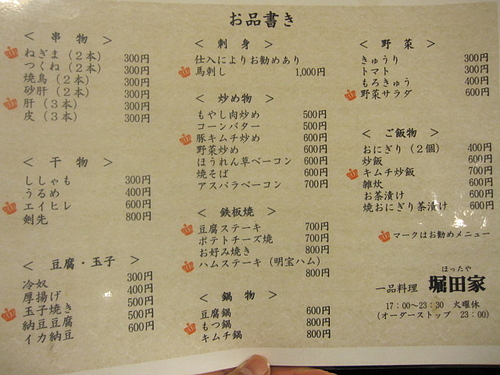 お品書き
＜ 串 物 ＞
ねぎま（２本） 300円
つくね（２本） 300円
焼鳥（２本） 300円
砂肝（２本） 300円
肝（３本） 300円
皮（３本） 300円
＜ 干 物 ＞
ししゃも 300円
うるめ 400円
エイヒレ 600円
剣先 800円
＜ 豆腐・玉子 ＞
冷奴 300円
厚揚げ 400円
玉子焼き 500円
納豆豆腐 500円
イカ納豆 600円
＜ 刺 身 ＞
仕入によりお勧めあり
馬刺し 1,000円
＜ 炒め物 ＞
もやし肉炒め 500円
コーンバター 500円
豚キムチ炒め 600円
野菜炒め 600円
ほうれん草ベーコン 600円
焼そば 600円
アスパラベーコン 700円
＜ 鉄板焼 ＞
豆腐ステーキ 700円
ポテトチーズ焼 700円
お好み焼き 800円
ハムステーキ（明宝ハム）
800円
＜ 鍋 物 ＞
豆腐鍋 600円
もつ鍋 800円
キムチ鍋 800円
＜ 野 菜 ＞
きゅうり 300円
トマト 300円
もろきゅう 400円
野菜サラダ 600円
＜ ご飯物 ＞
おにぎり（２個） 400円
炒飯 600円
キムチ炒飯 700円
雑炊 600円
お茶漬け 600円
焼おにぎり茶漬け 600円
マークはお勧めメニュー
ほったや
一品料理 堀田家
17：00～23：30 火曜休
（オーダーストップ 23：00）